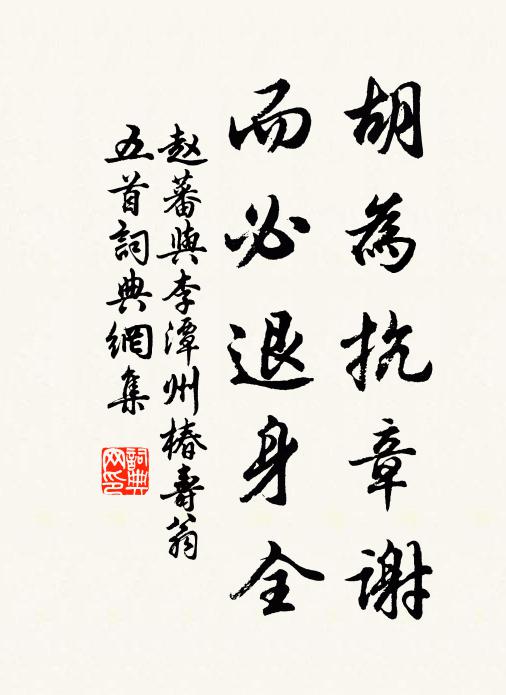 胡為抗章謝
而必退身全
赵蕃與李潭州椿壽翁
五首詞典網集
詞典网印